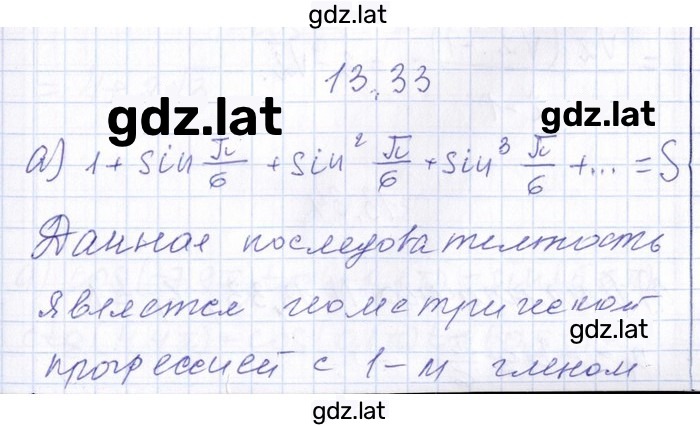 gdz.lat
13.33
gdz.lat
gdz.lat
а) 1 + sin π/6 + sin² π/6 + sin³ π/6 + ... = S
Данная последовательность
является геометрической
gdz.lat
прогрессией с 1-м членом
gdz.lat